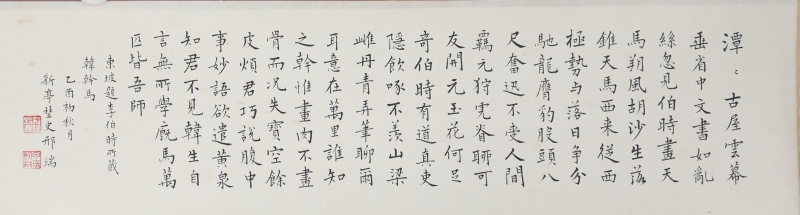 潭〻古屋雲幕
垂省中文書如亂
絲忽見伯時畫天
馬朔風胡沙生落
錐天馬西来從西
極勢与落日争分
馳龍膺豹股頭八
尺奮迅不受人間
羈元狩虎脊聊可
友開元玉花何足
奇伯時有道真吏
隱飲啄不羨山梁
雌丹青弄筆聊爾
耳意在萬里誰知
之幹惟畫肉不畫
骨而況失實空餘
皮煩君巧說腹中
事妙語欲遣黄泉
知君不見韓生自
言無所學廐馬萬
匹皆吾師
東坡題李伯時所藏
韓幹馬
乙酉初秋月
新亭埜史邢端